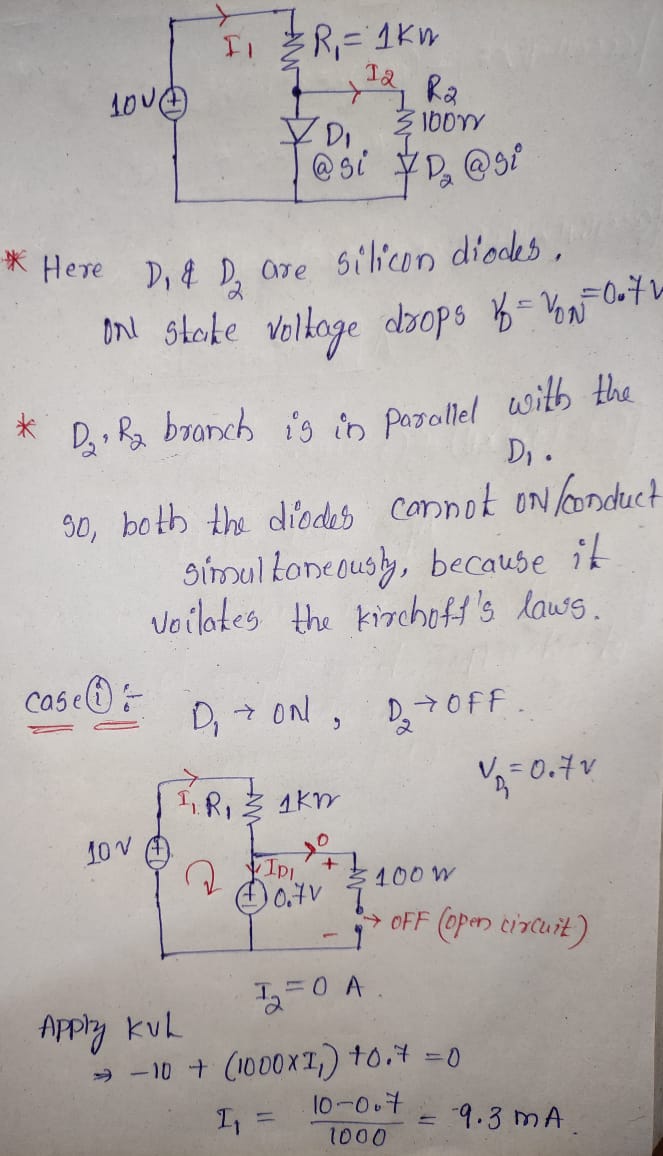 I1 R1 = 1KΩ
I2 R2
10V 100Ω
D1
@Si D2 @Si
* Here D1 & D2 are silicon diodes.
ON state voltage drops VD = VON = 0.7V
* D2, R2 branch is in parallel with the
D1.
so, both the diodes cannot ON/conduct
simultaneously, because it
voilates the kirchoff's laws.
case (i) :-
D1 → ON, D2 → OFF.
VD1 = 0.7V
I1 R1 1KΩ
10V 0
ID1 + 100Ω
0.7V
- → OFF (open circuit)
I2 = 0 A.
Apply KVL
⇒ -10 + (1000×I1) + 0.7 = 0
I1 = 10-0.7 / 1000 = 9.3 mA.